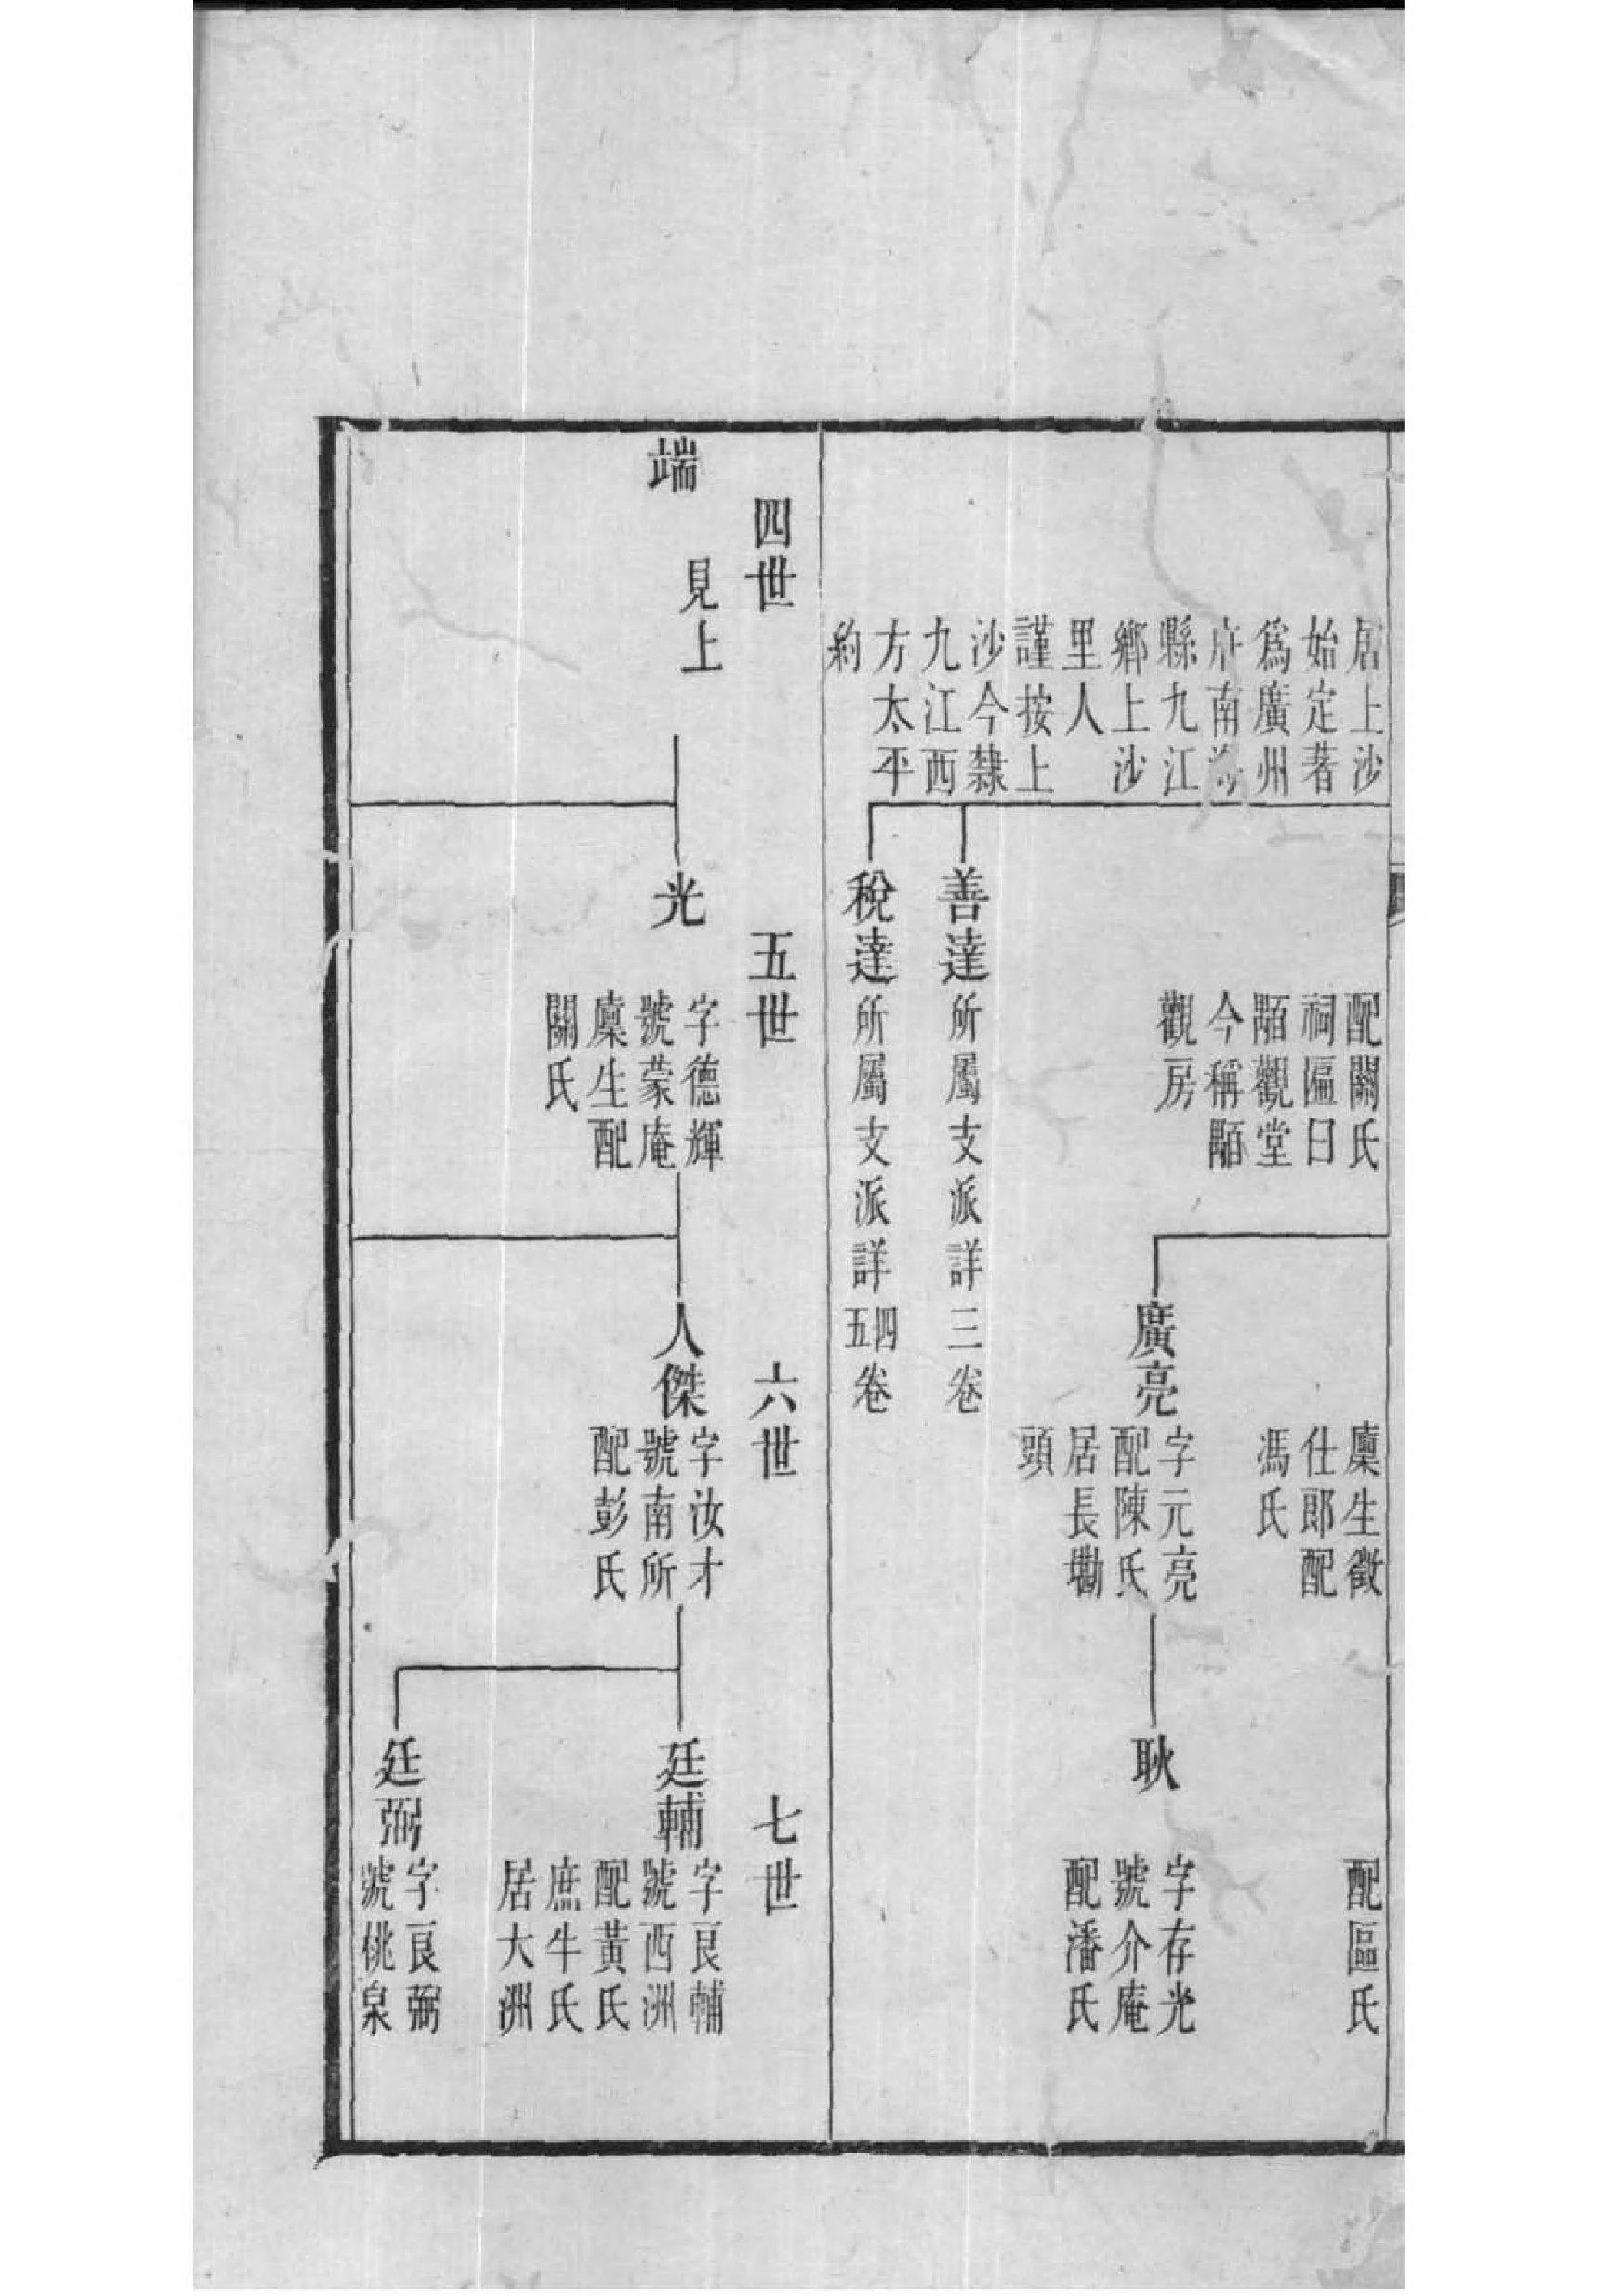 居上沙
始定著
爲廣州
府南海
縣九江
鄉上沙
里人
謹按上
沙今隸
九江西
方太平
約
配關氏
祠匾曰
顒觀堂
今稱顒
觀房
善達所屬支派詳三卷
稅達所屬支派詳四五卷
廩生徵
仕郎配
馮氏
廣亮
字元亮
配陳氏
居長墈
頭
配區氏
耿
字存光
號介庵
配潘氏
四世
五世
六世
七世
端
見上
光
字德輝
號蒙庵
廩生配
關氏
人傑
字汝才
號南所
配彭氏
廷輔
字良輔
號西洲
配黃氏
庶牛氏
居大洲
廷弼
字良弼
號桃泉